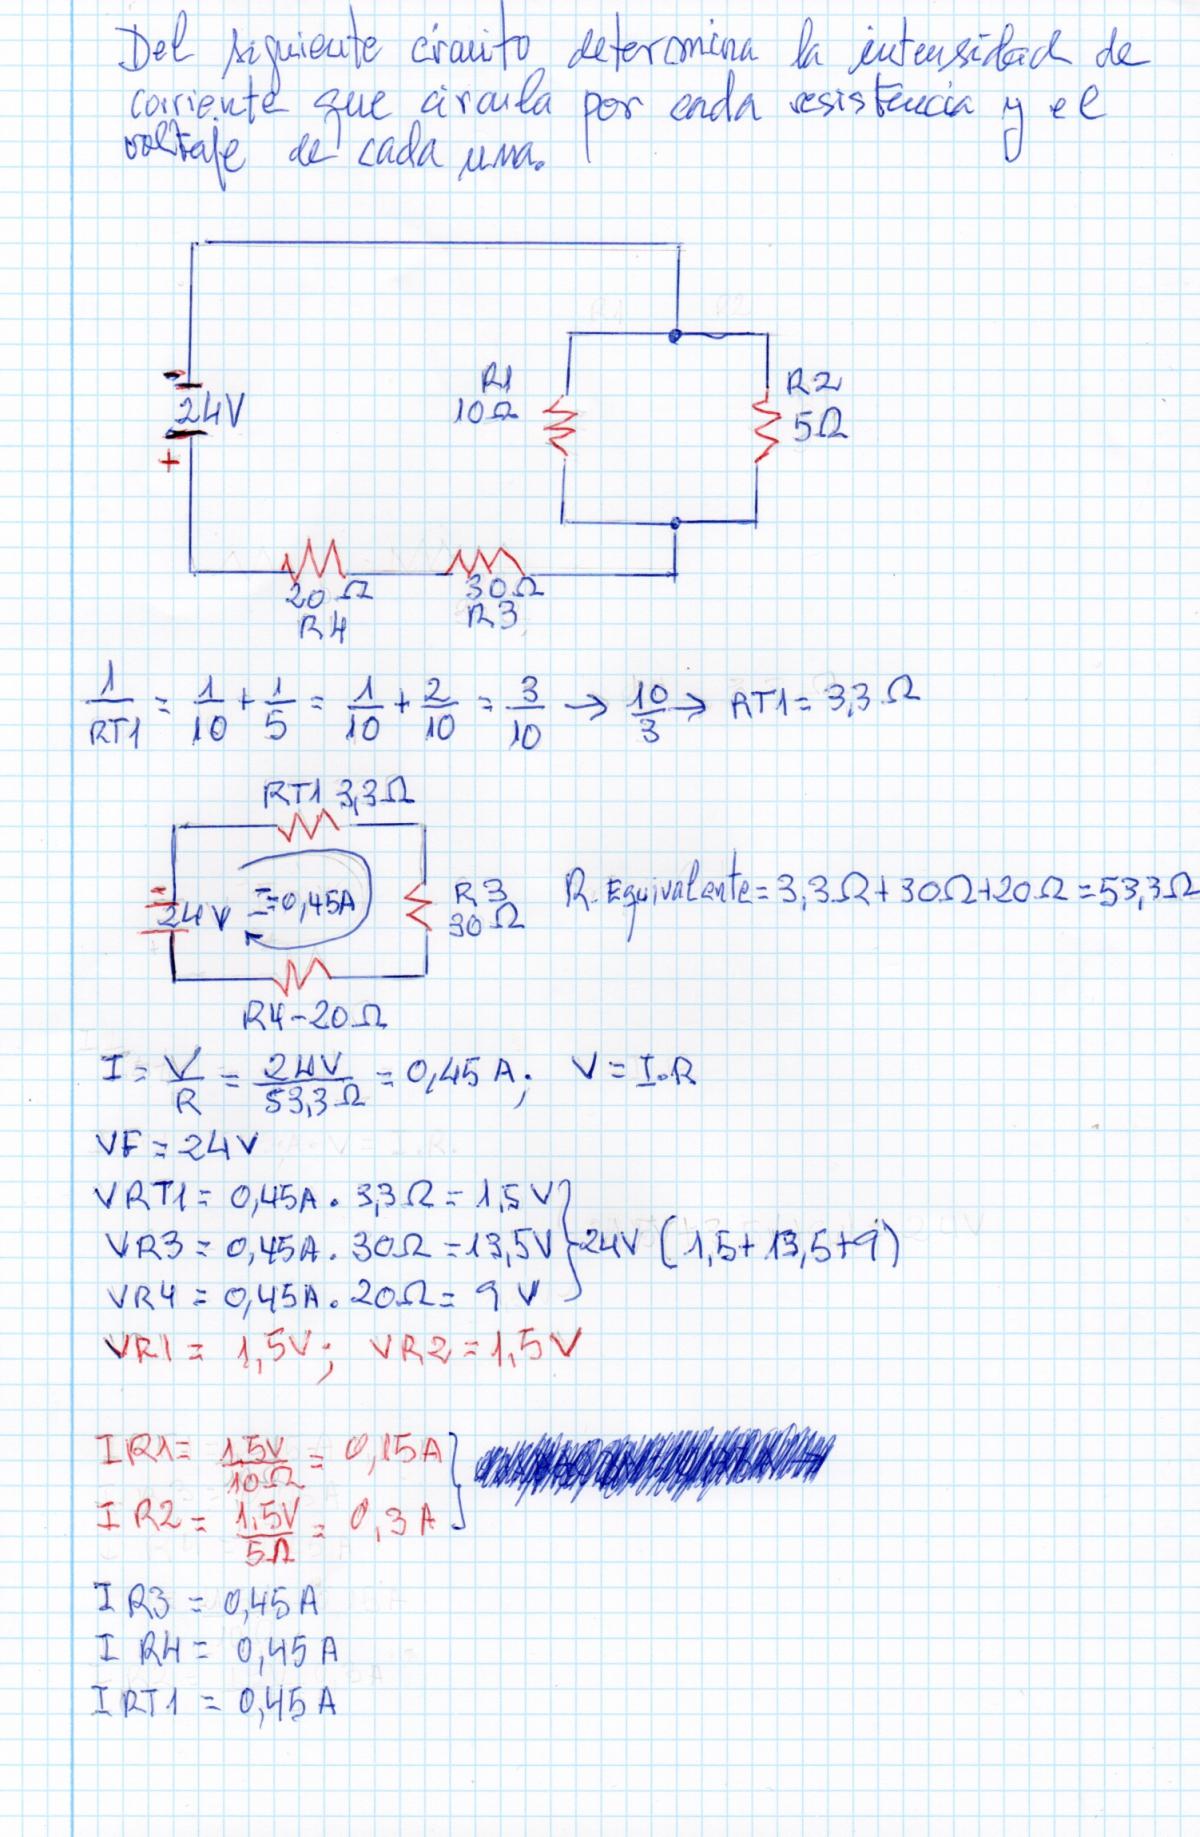 Del siguiente circuito determina la intensidad de
corriente que circula por cada resistencia y el
voltaje de cada una.
-
24V
+
R1
10Ω
R2
5Ω
20Ω
R4
30Ω
R3
1/RT1 = 1/10 + 1/5 = 1/10 + 2/10 = 3/10 → 10/3 → RT1 = 3,3Ω
RT1 3,3Ω
24V
I=0,45A
R3
30Ω
R. Equivalente = 3,3Ω + 30Ω + 20Ω = 53,3Ω
R4-20Ω
I = V/R = 24V/53,3Ω = 0,45A; V = I.R
VF = 24V
VRT1 = 0,45A. 3,3Ω = 1,5V
VR3 = 0,45A. 30Ω = 13,5V } 24V (1,5+13,5+9)
VR4 = 0,45A. 20Ω = 9V
VR1 = 1,5V; VR2 = 1,5V
I R1 = 1,5V/10Ω = 0,15A
I R2 = 1,5V/5Ω = 0,3A
I R3 = 0,45A
I R4 = 0,45A
I RT1 = 0,45A